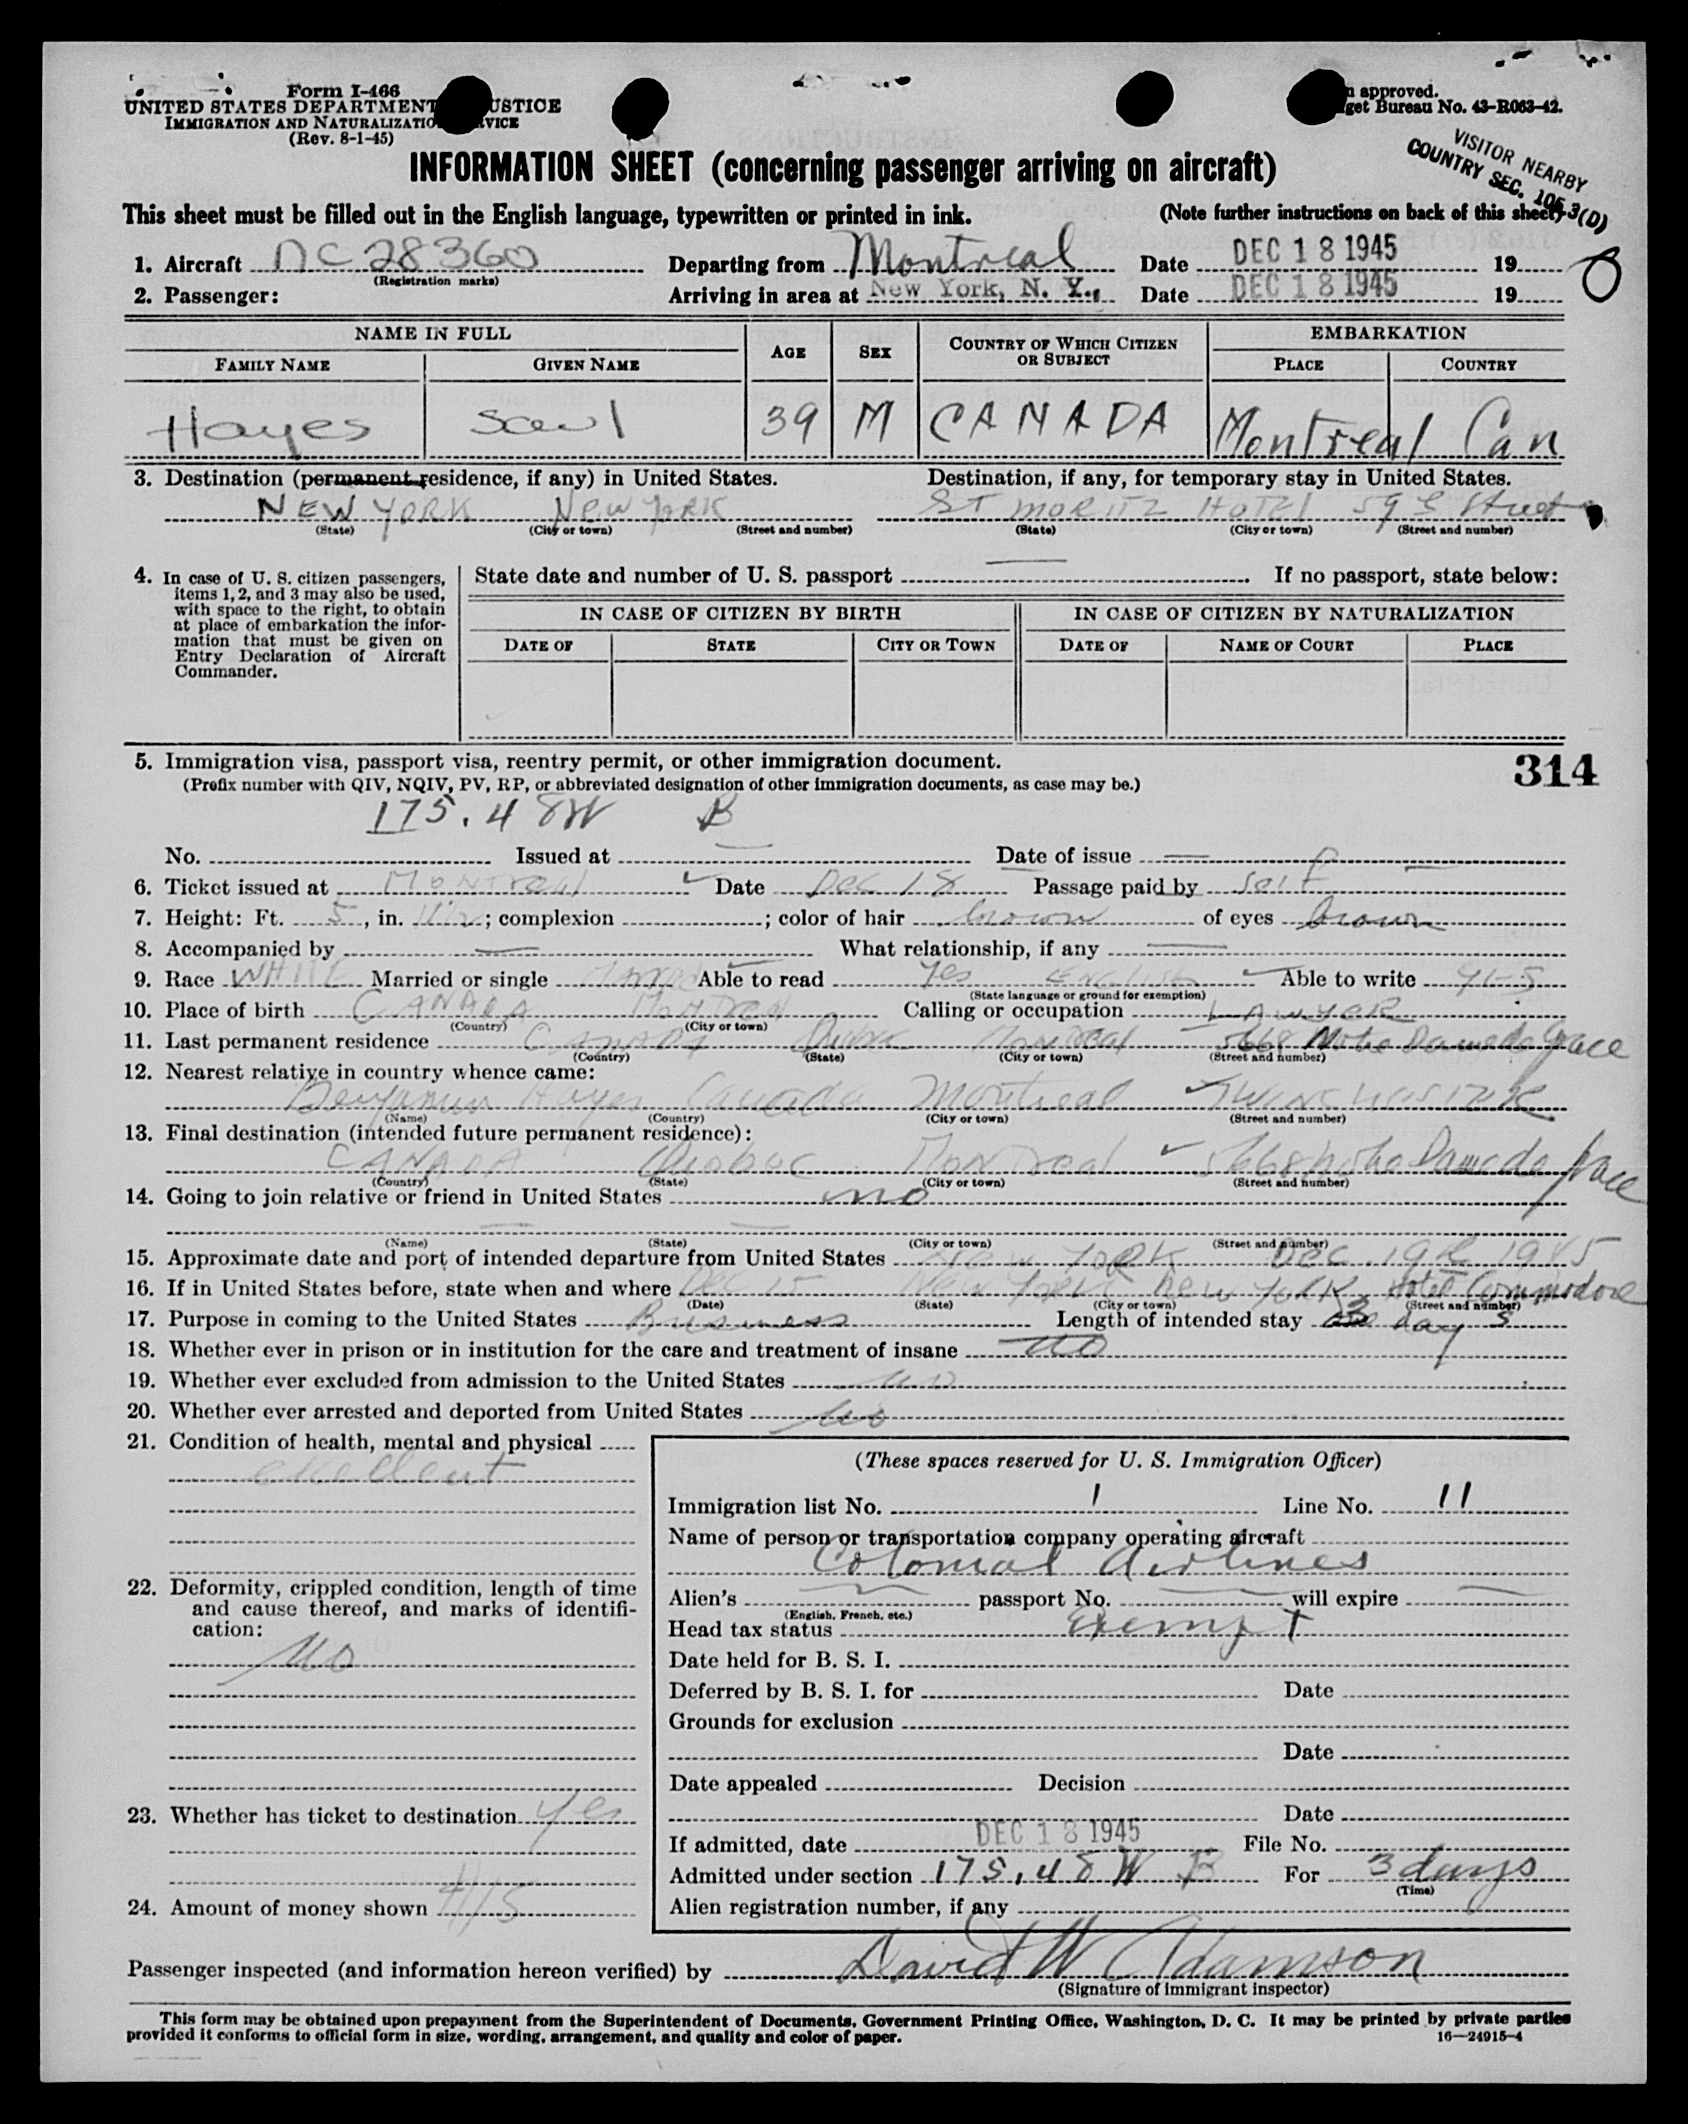 Form I-466
UNITED STATES DEPARTMENT USTICE
IMMIGRATION AND NATURALIZATIO VICE
(Rev. 8-1-45)
approved.
get Bureau No. 43-R063-42.
VISITOR NEARBY
COUNTRY SEC. 105.3(D)
INFORMATION SHEET (concerning passenger arriving on aircraft)
This sheet must be filled out in the English language, typewritten or printed in ink. (Note further instructions on back of this sheet)
1. Aircraft NC 28360 Departing from Montreal Date DEC 18 1945 19
(Registration marks)
2. Passenger: Arriving in area at New York, N. Y., Date DEC 18 1945 19
NAME IN FULL AGE SEX COUNTRY OF WHICH CITIZEN OR SUBJECT EMBARKATION
FAMILY NAME GIVEN NAME PLACE COUNTRY
Hayes Saul 39 M CANADA Montreal Can
3. Destination (permanent residence, if any) in United States. Destination, if any, for temporary stay in United States.
NEW YORK New York ST MORITZ HOTEL 59 Street
(State) (City or town) (Street and number) (State) (City or town) (Street and number)
4. In case of U. S. citizen passengers, items 1, 2, and 3 may also be used, with space to the right, to obtain at place of embarkation the information that must be given on Entry Declaration of Aircraft Commander.
State date and number of U. S. passport — If no passport, state below:
IN CASE OF CITIZEN BY BIRTH IN CASE OF CITIZEN BY NATURALIZATION
DATE OF STATE CITY OR TOWN DATE OF NAME OF COURT PLACE
314
5. Immigration visa, passport visa, reentry permit, or other immigration document.
(Prefix number with QIV, NQIV, PV, RP, or abbreviated designation of other immigration documents, as case may be.)
175.48W B
No. Issued at — Date of issue —
6. Ticket issued at Montreal Date Dec 18 Passage paid by self
7. Height: Ft. 5, in. ; complexion ; color of hair brown of eyes brown
8. Accompanied by — What relationship, if any —
9. Race WHITE Married or single Married Able to read Yes ENGLISH Able to write yes
(State language or ground for exemption)
10. Place of birth CANADA Montreal Calling or occupation LAWYER
(Country) (City or town)
11. Last permanent residence CANADA Quebec Montreal 5668 Notre Dame de Grace
(Country) (State) (City or town) (Street and number)
12. Nearest relative in country whence came:
Benjamin Hayes Canada Montreal
(Name) (Country) (City or town) (Street and number)
13. Final destination (intended future permanent residence):
CANADA Quebec Montreal 5668 Notre Dame de Grace
(Country) (State) (City or town) (Street and number)
14. Going to join relative or friend in United States no
(Name) (State) (City or town) (Street and number)
15. Approximate date and port of intended departure from United States New York Dec. 19 1945
16. If in United States before, state when and where Dec 15 New York New York Hotel Commodore
(Date) (State) (City or town) (Street and number)
17. Purpose in coming to the United States Business Length of intended stay 3 days
18. Whether ever in prison or in institution for the care and treatment of insane no
19. Whether ever excluded from admission to the United States no
20. Whether ever arrested and deported from United States no
21. Condition of health, mental and physical
excellent
22. Deformity, crippled condition, length of time and cause thereof, and marks of identification:
no
23. Whether has ticket to destination yes
24. Amount of money shown
(These spaces reserved for U. S. Immigration Officer)
Immigration list No. 1 Line No. 11
Name of person or transportation company operating aircraft
Colonial Airlines
Alien's — passport No. — will expire —
(English, French, etc.)
Head tax status Exempt
Date held for B. S. I.
Deferred by B. S. I. for Date
Grounds for exclusion
Date
Date appealed Decision
Date
If admitted, date DEC 18 1945 File No.
Admitted under section 175.48W B For 3 days
(Time)
Alien registration number, if any
Passenger inspected (and information hereon verified) by David W Adamson
(Signature of immigrant inspector)
This form may be obtained upon prepayment from the Superintendent of Documents, Government Printing Office, Washington, D. C. It may be printed by private parties
provided it conforms to official form in size, wording, arrangement, and quality and color of paper. 16—24915-4